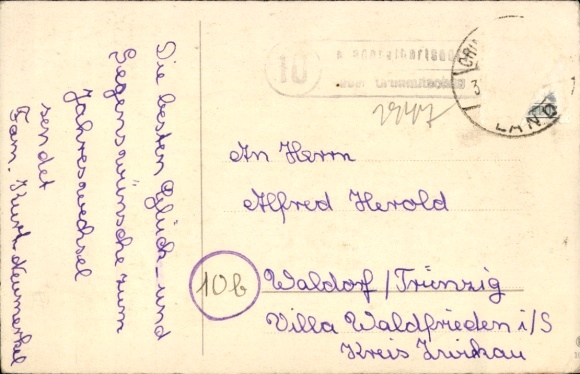 Die besten Glück- und
Segenswünsche zum
Jahreswechsel
sendet
Fam. Kurt Neumerkel
10
über Crimmitschau
LAND
An Herrn
Alfred Herold
10b
Waldorf/Trünzig
Villa Waldfrieden i/S
Kreis Zwickau